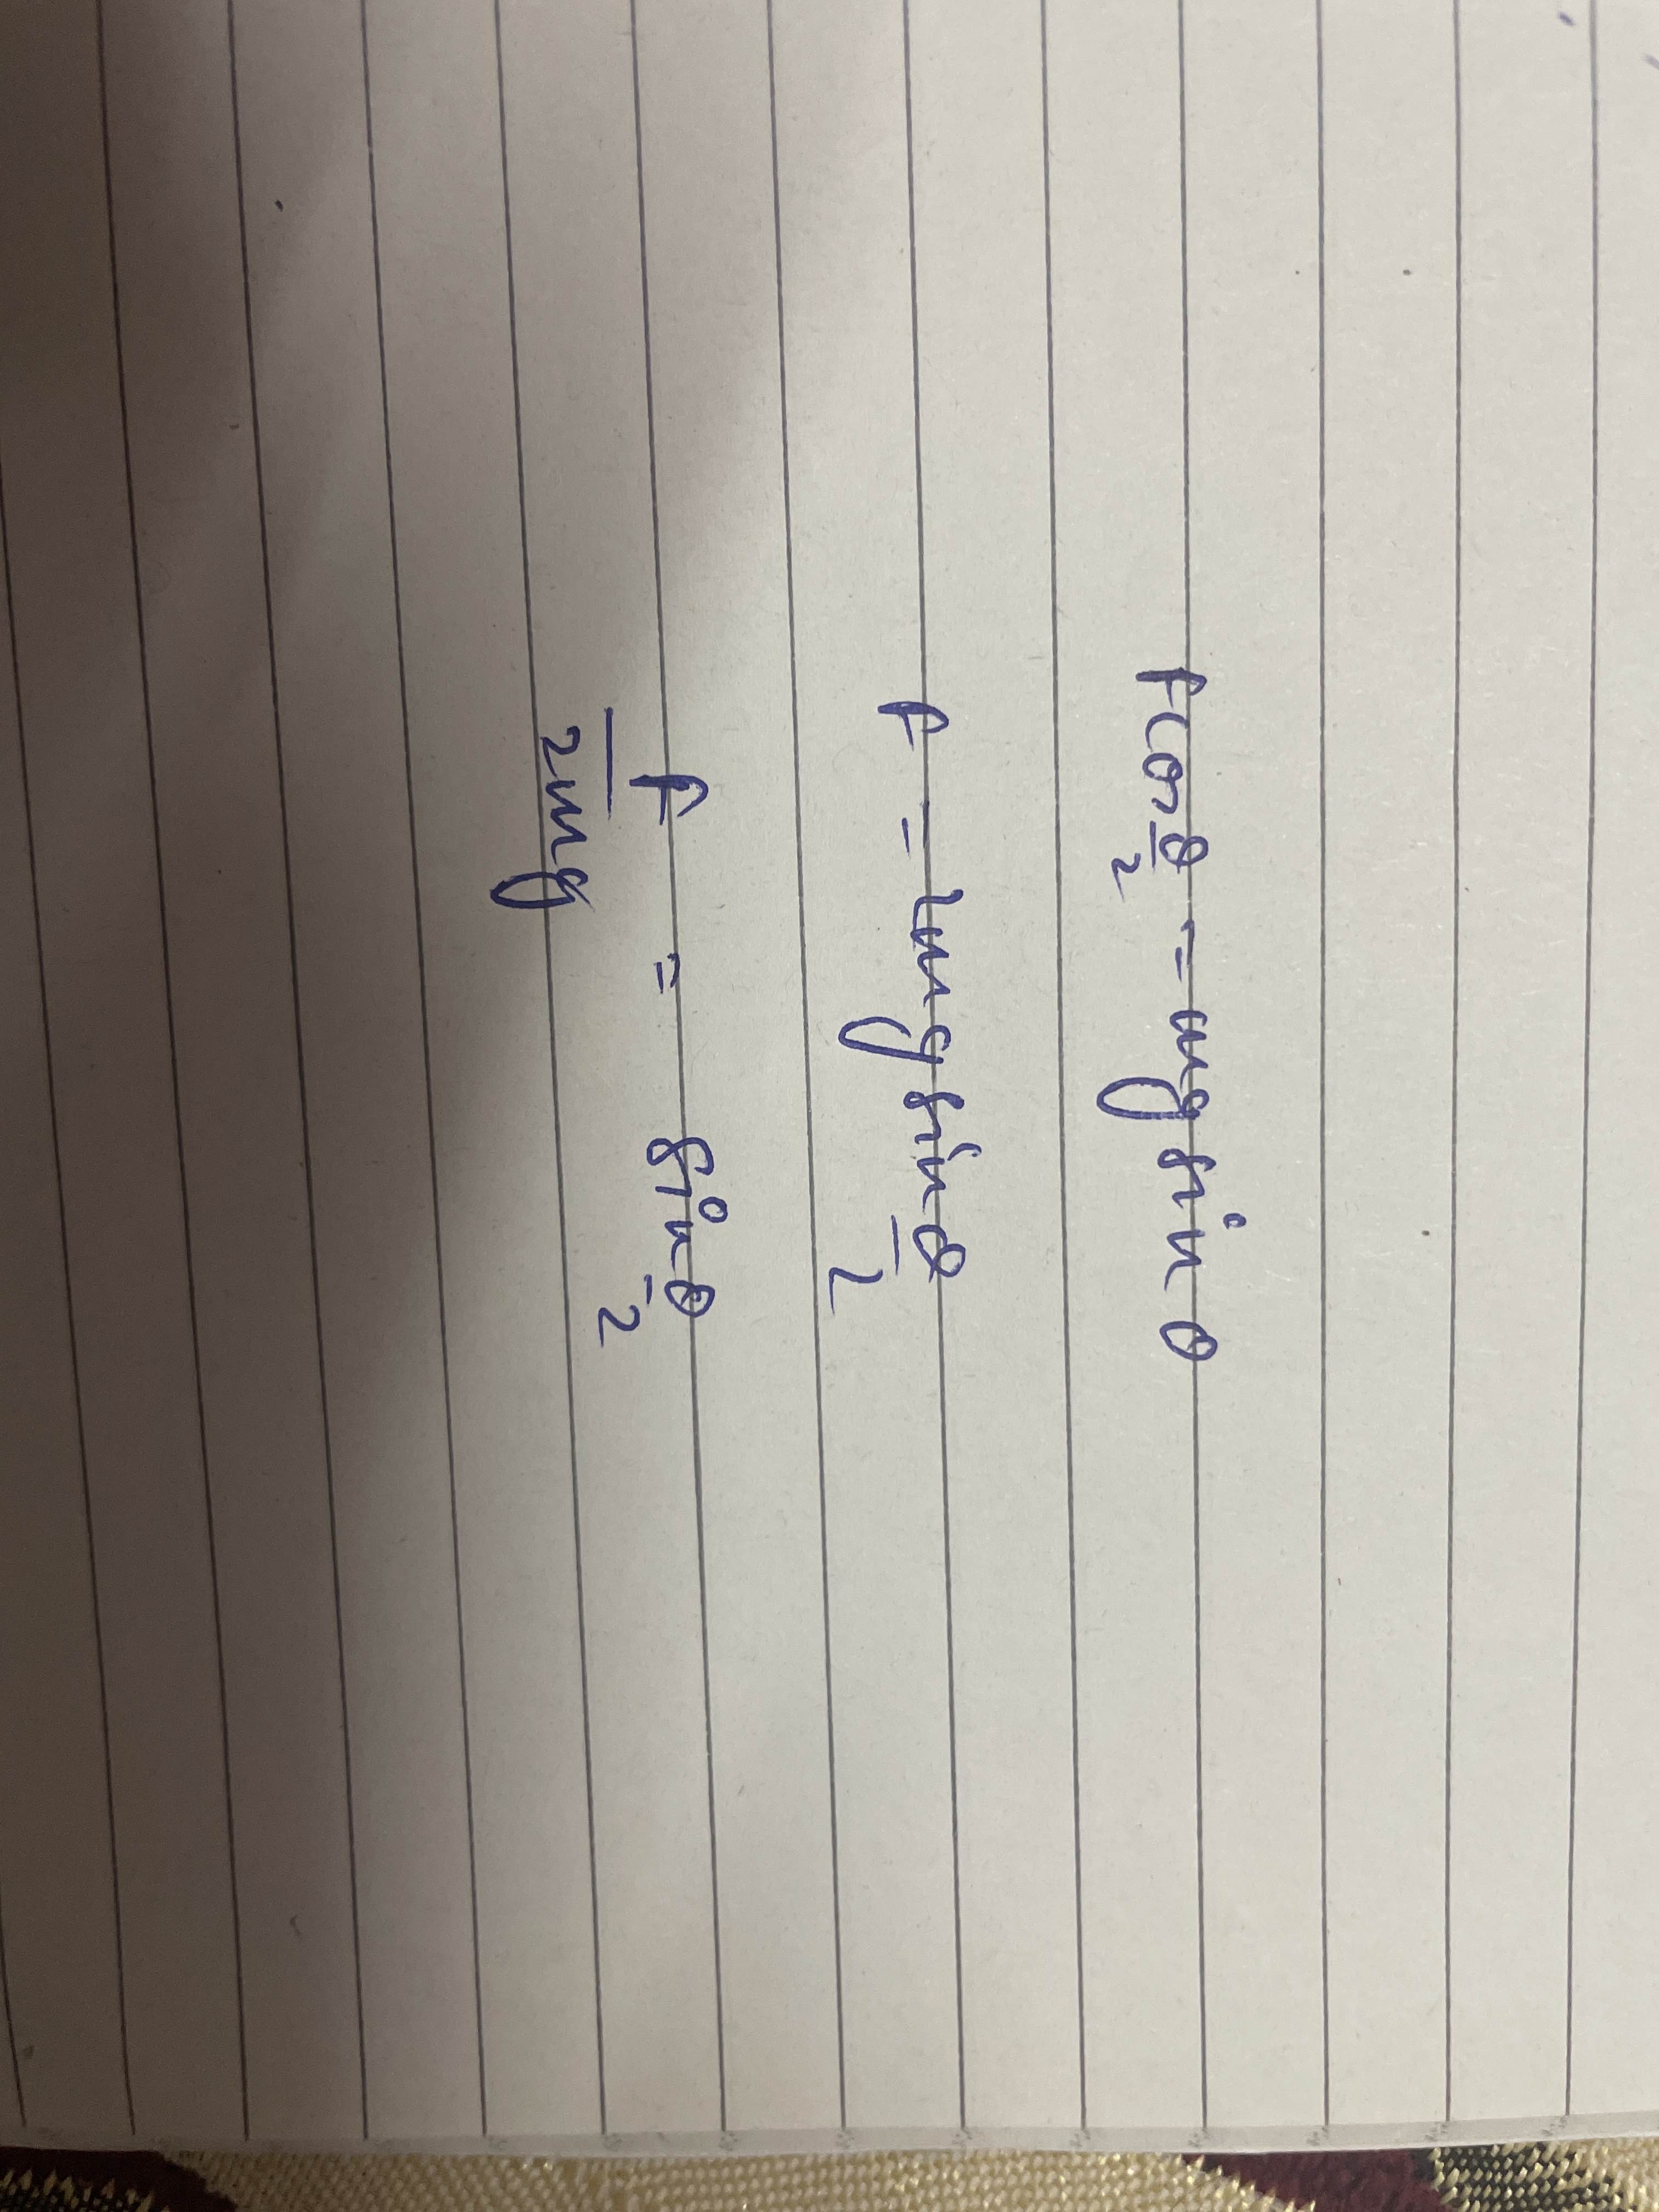 Fcos θ/2 = mg sin θ
F = 2mg sin θ/2
F/2mg = sin θ/2